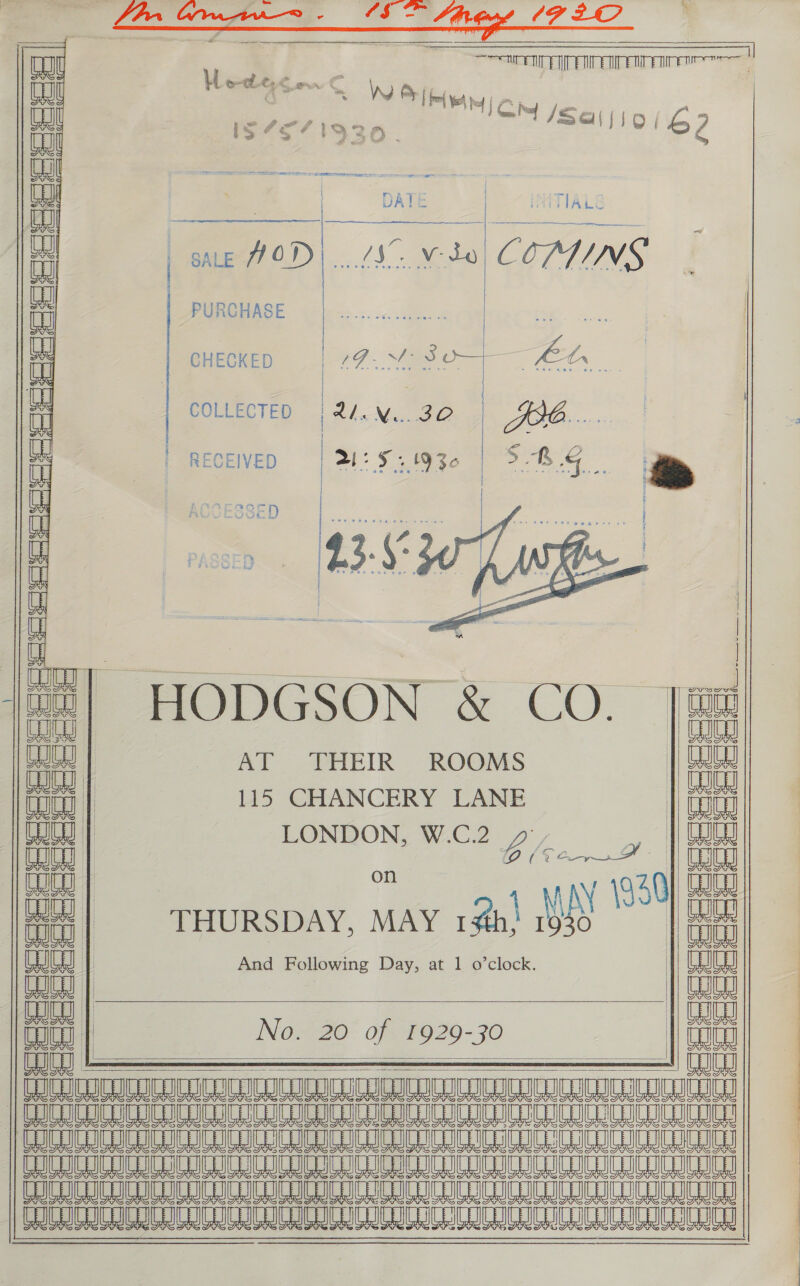 15th May 1930
Hodgson &
15/5/1930.
DATE INITIALS
SALE HOD 15. V. 30 COMINS
PURCHASE
CHECKED 19. V. 30
COLLECTED 21. V. 30
RECEIVED 21: 5: 1930 S.B.G.
ACCESSED
PASSED 23.5.30
HODGSON & CO.
AT THEIR ROOMS
115 CHANCERY LANE
LONDON, W.C.2
on
21 MAY 1930
THURSDAY, MAY 15th, 1930
And Following Day, at 1 o’clock.
No. 20 of 1929-30